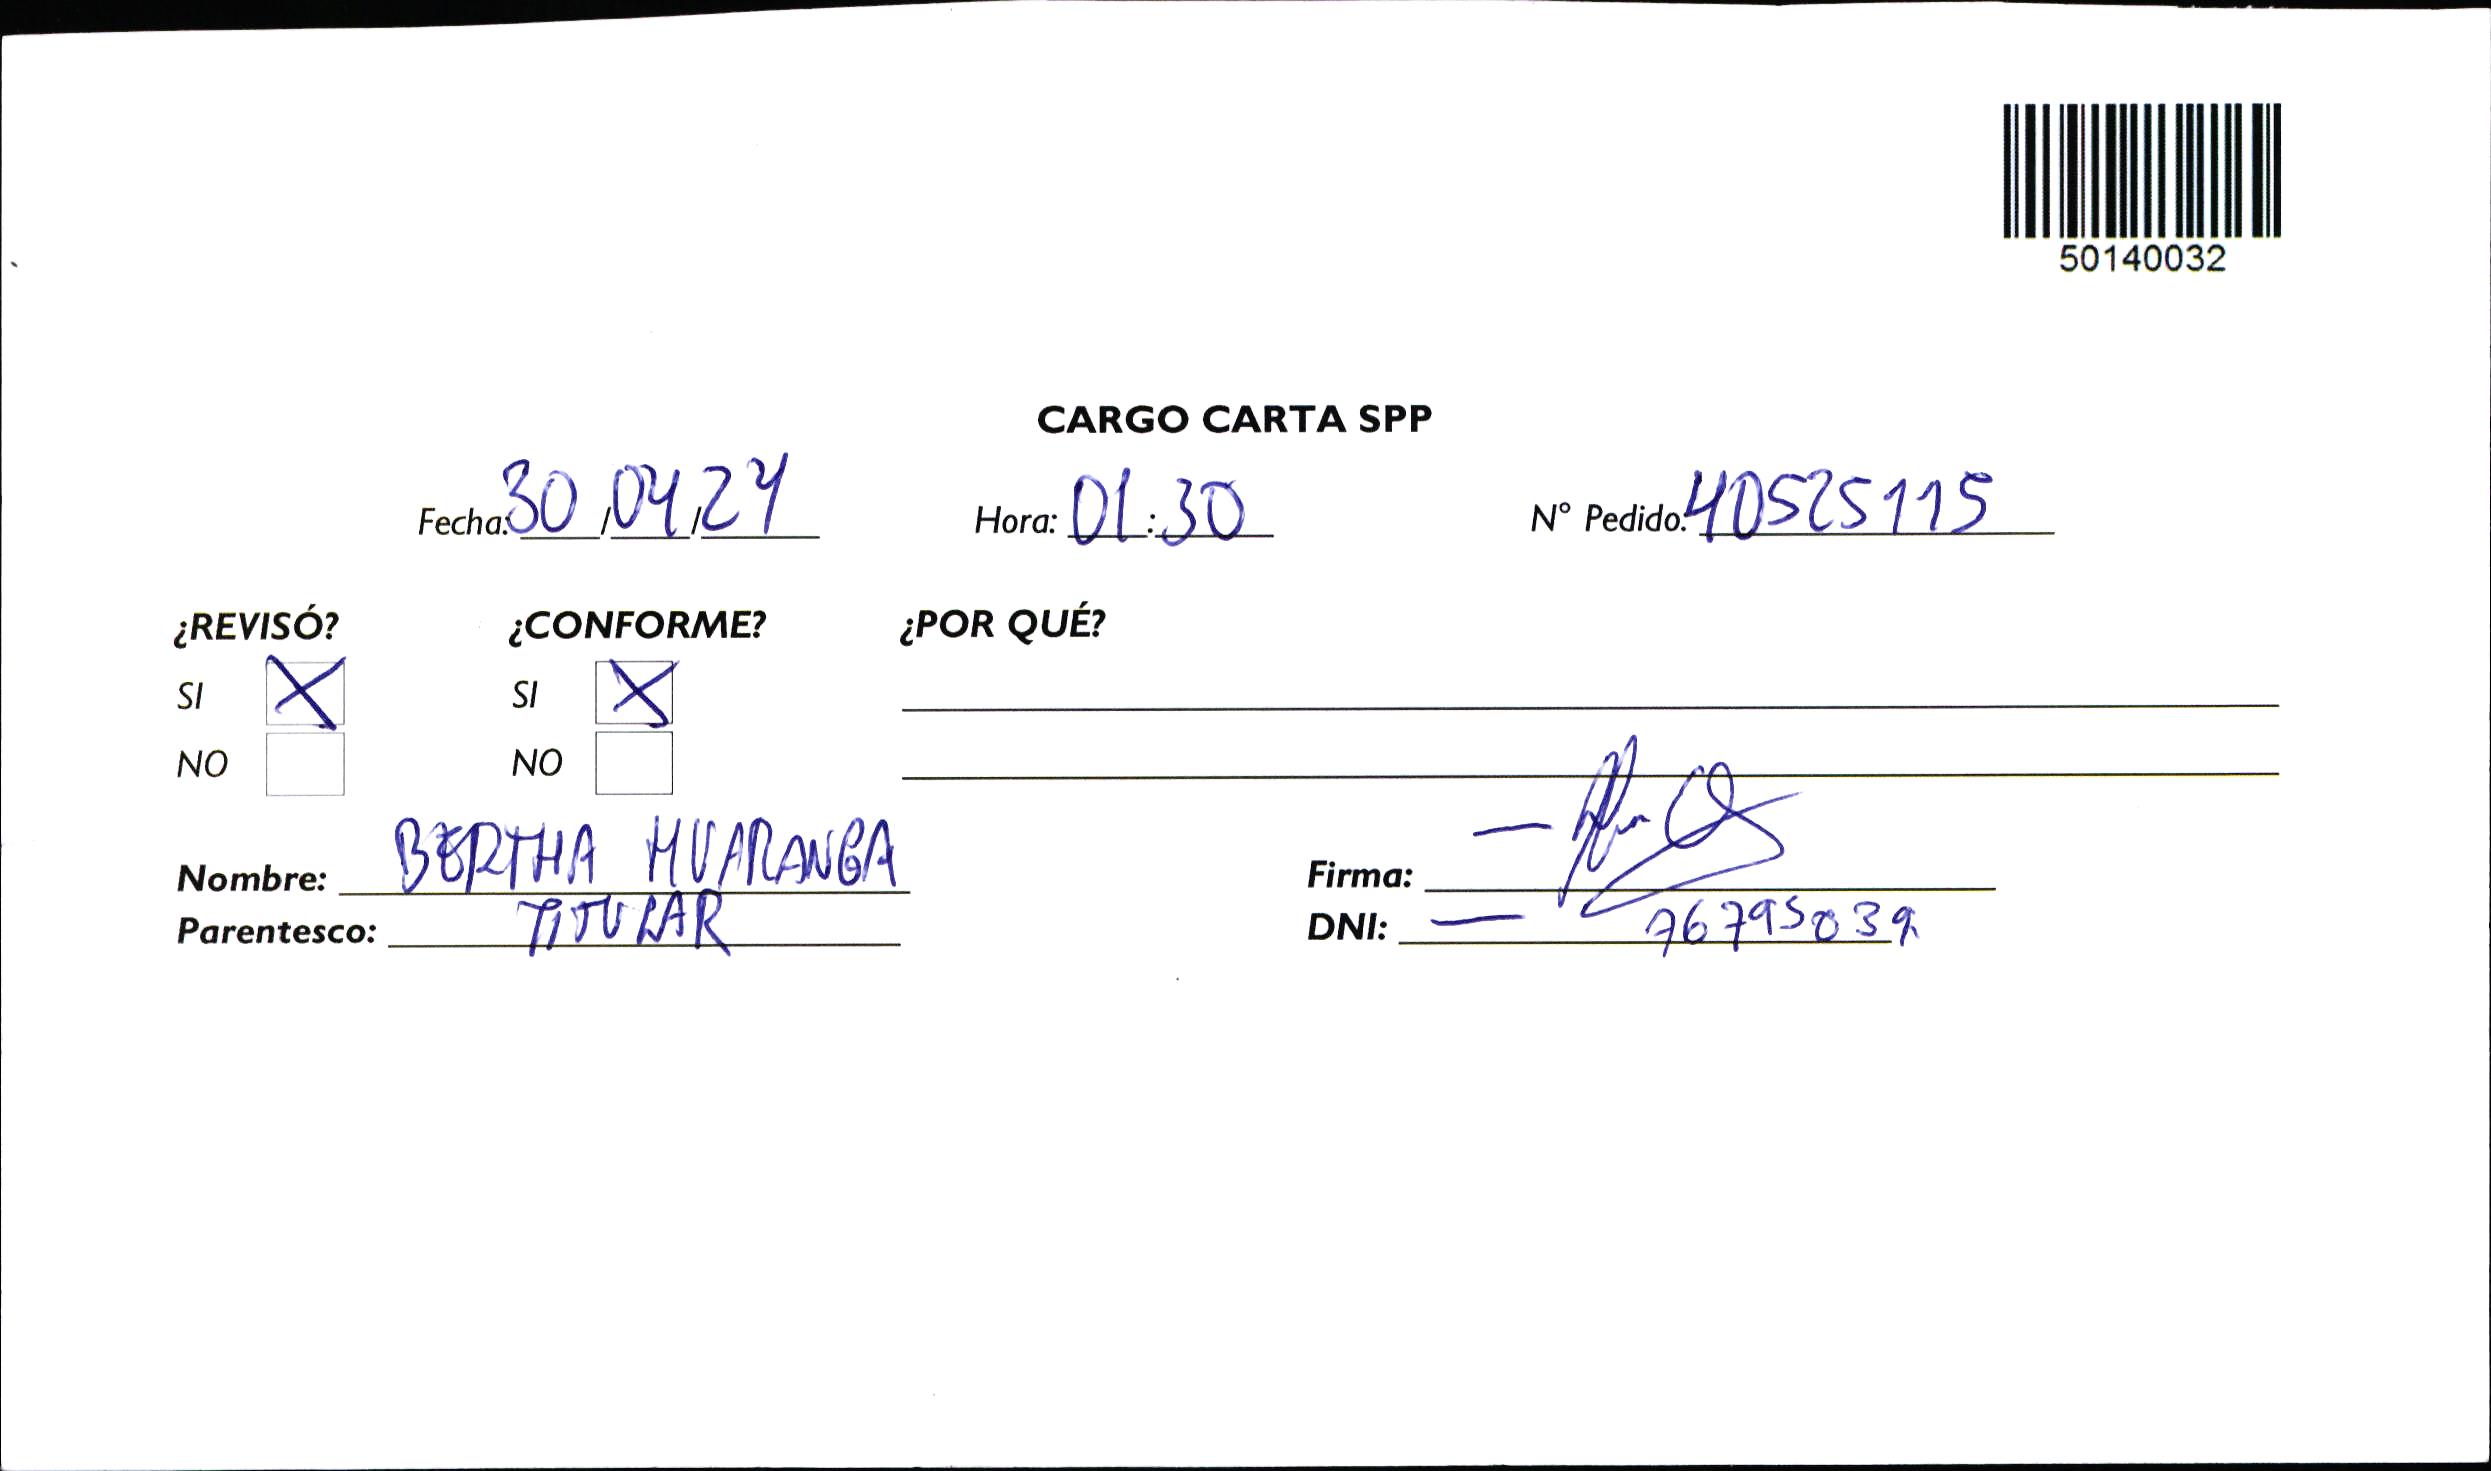 50140032
CARGO CARTA SPP
Fecha: 30/04/24 Hora: 01:30 N° Pedido: 40525115
¿REVISÓ? ¿CONFORME? ¿POR QUÉ?
SI SI
NO NO
Nombre: BERTHA HUARANGA Firma:
Parentesco: TITULAR DNI: 76795039